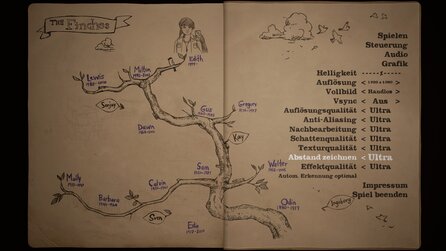 THE Finches
Edith
Milton
Lewis
Sanjay
Gus
Gregory
Dawn
Kay
Sam
Walter
Molly
Calvin
Barbara
Sven
Odin
Edie
Spielen
Steuerung
Audio
Grafik
Helligkeit
Auflösung < 1920 x 1080 >
Vollbild < Randlos >
Vsync < Aus >
Auflösungsqualität < Ultra
Anti-Aliasing < Ultra
Nachbearbeitung < Ultra
Schattenqualität < Ultra
Texturqualität < Ultra
Abstand zeichnen < Ultra
Effektqualität < Ultra
Autom. Erkennung optimal
Impressum
Spiel beenden
Ingeborg